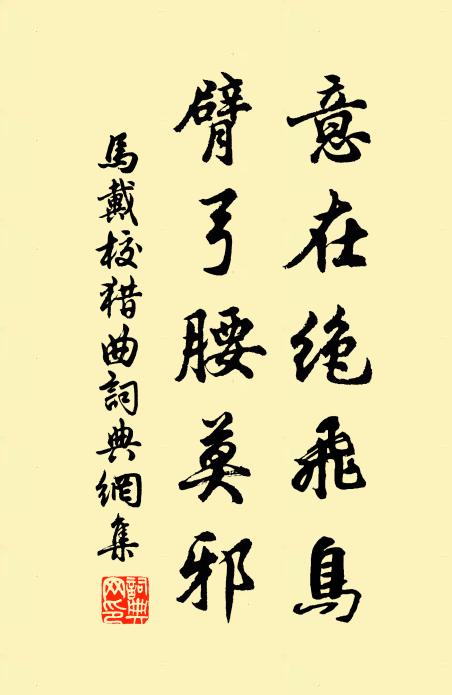 意在绝飛鳥
臂弓腰莫邪
馬戴校猎曲詞典網集